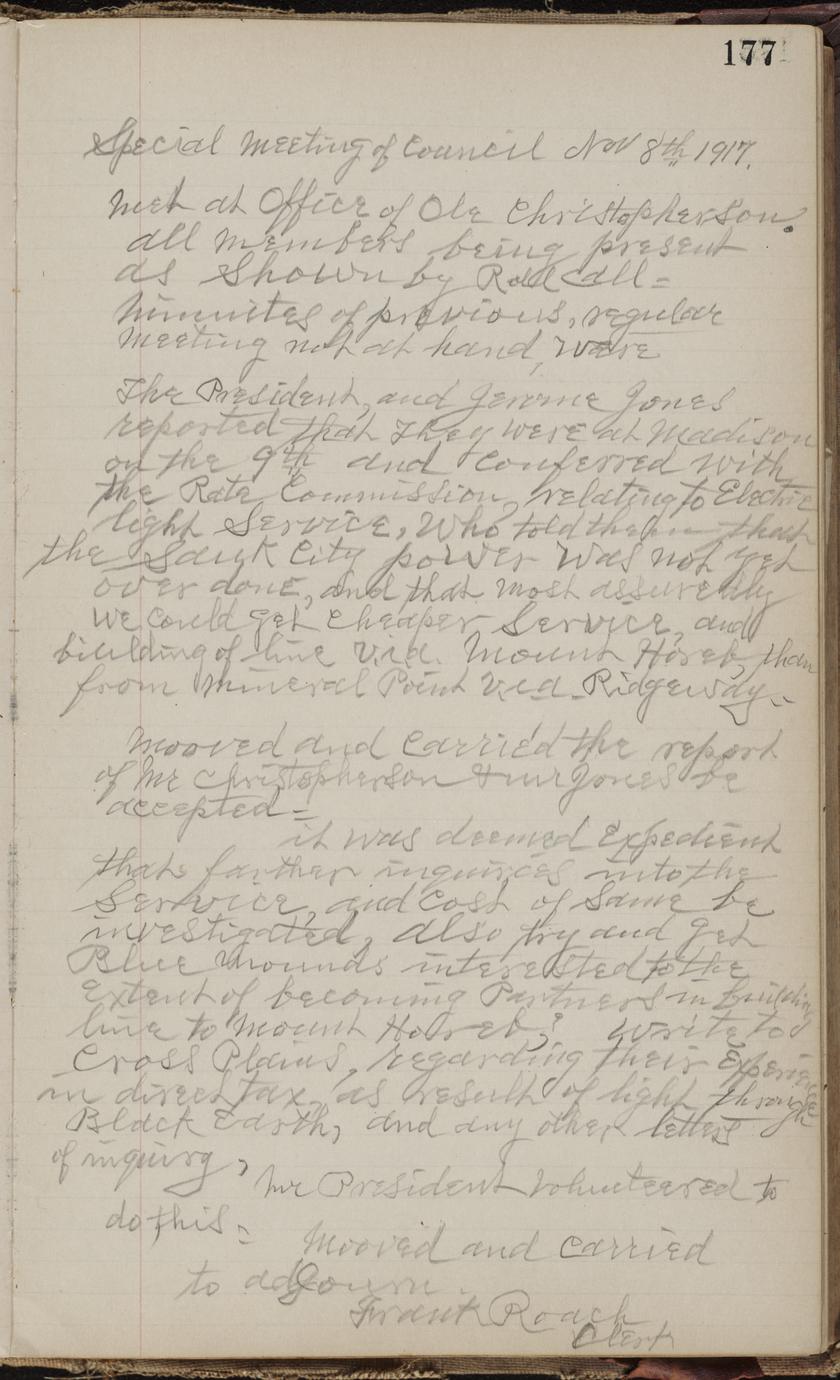 177
Special Meeting of Council Nov 8th 1917.
Met at Office of Ole Christopherson.
all members being present
as Shown by Roll call =
Minuites of previous, regular
meeting not at hand, were
The President, and Jerome Jones
reported that They were at Madison
on the 9th and Conferred with
the Rate Commission, relating to Electric
light Service, Who told them that
the Sauk City power was not yet
over done, and that most assuredly
We Could get Cheaper Service, and
building of line via. Mount Horeb, than
from Mineral Point via Ridgeway.
Mooved and Carried the report
of Mr Christopherson & Mr Jones be
accepted =
it was deemed Expedient
that farther inquiries into the
Service, and Cost of Same be
investigated, also try and get
Blue Mounds interested to the
Extent of becoming Partners in building
line to Mount Horeb; Write to
Cross Plains, regarding their Experience
in direct tax, as result of light through
Black Earth, and any other letters
of inquiry,
Mr President Volunteered to
do this =
Mooved and Carried
to adjourn.
Frank Roach
Clerk